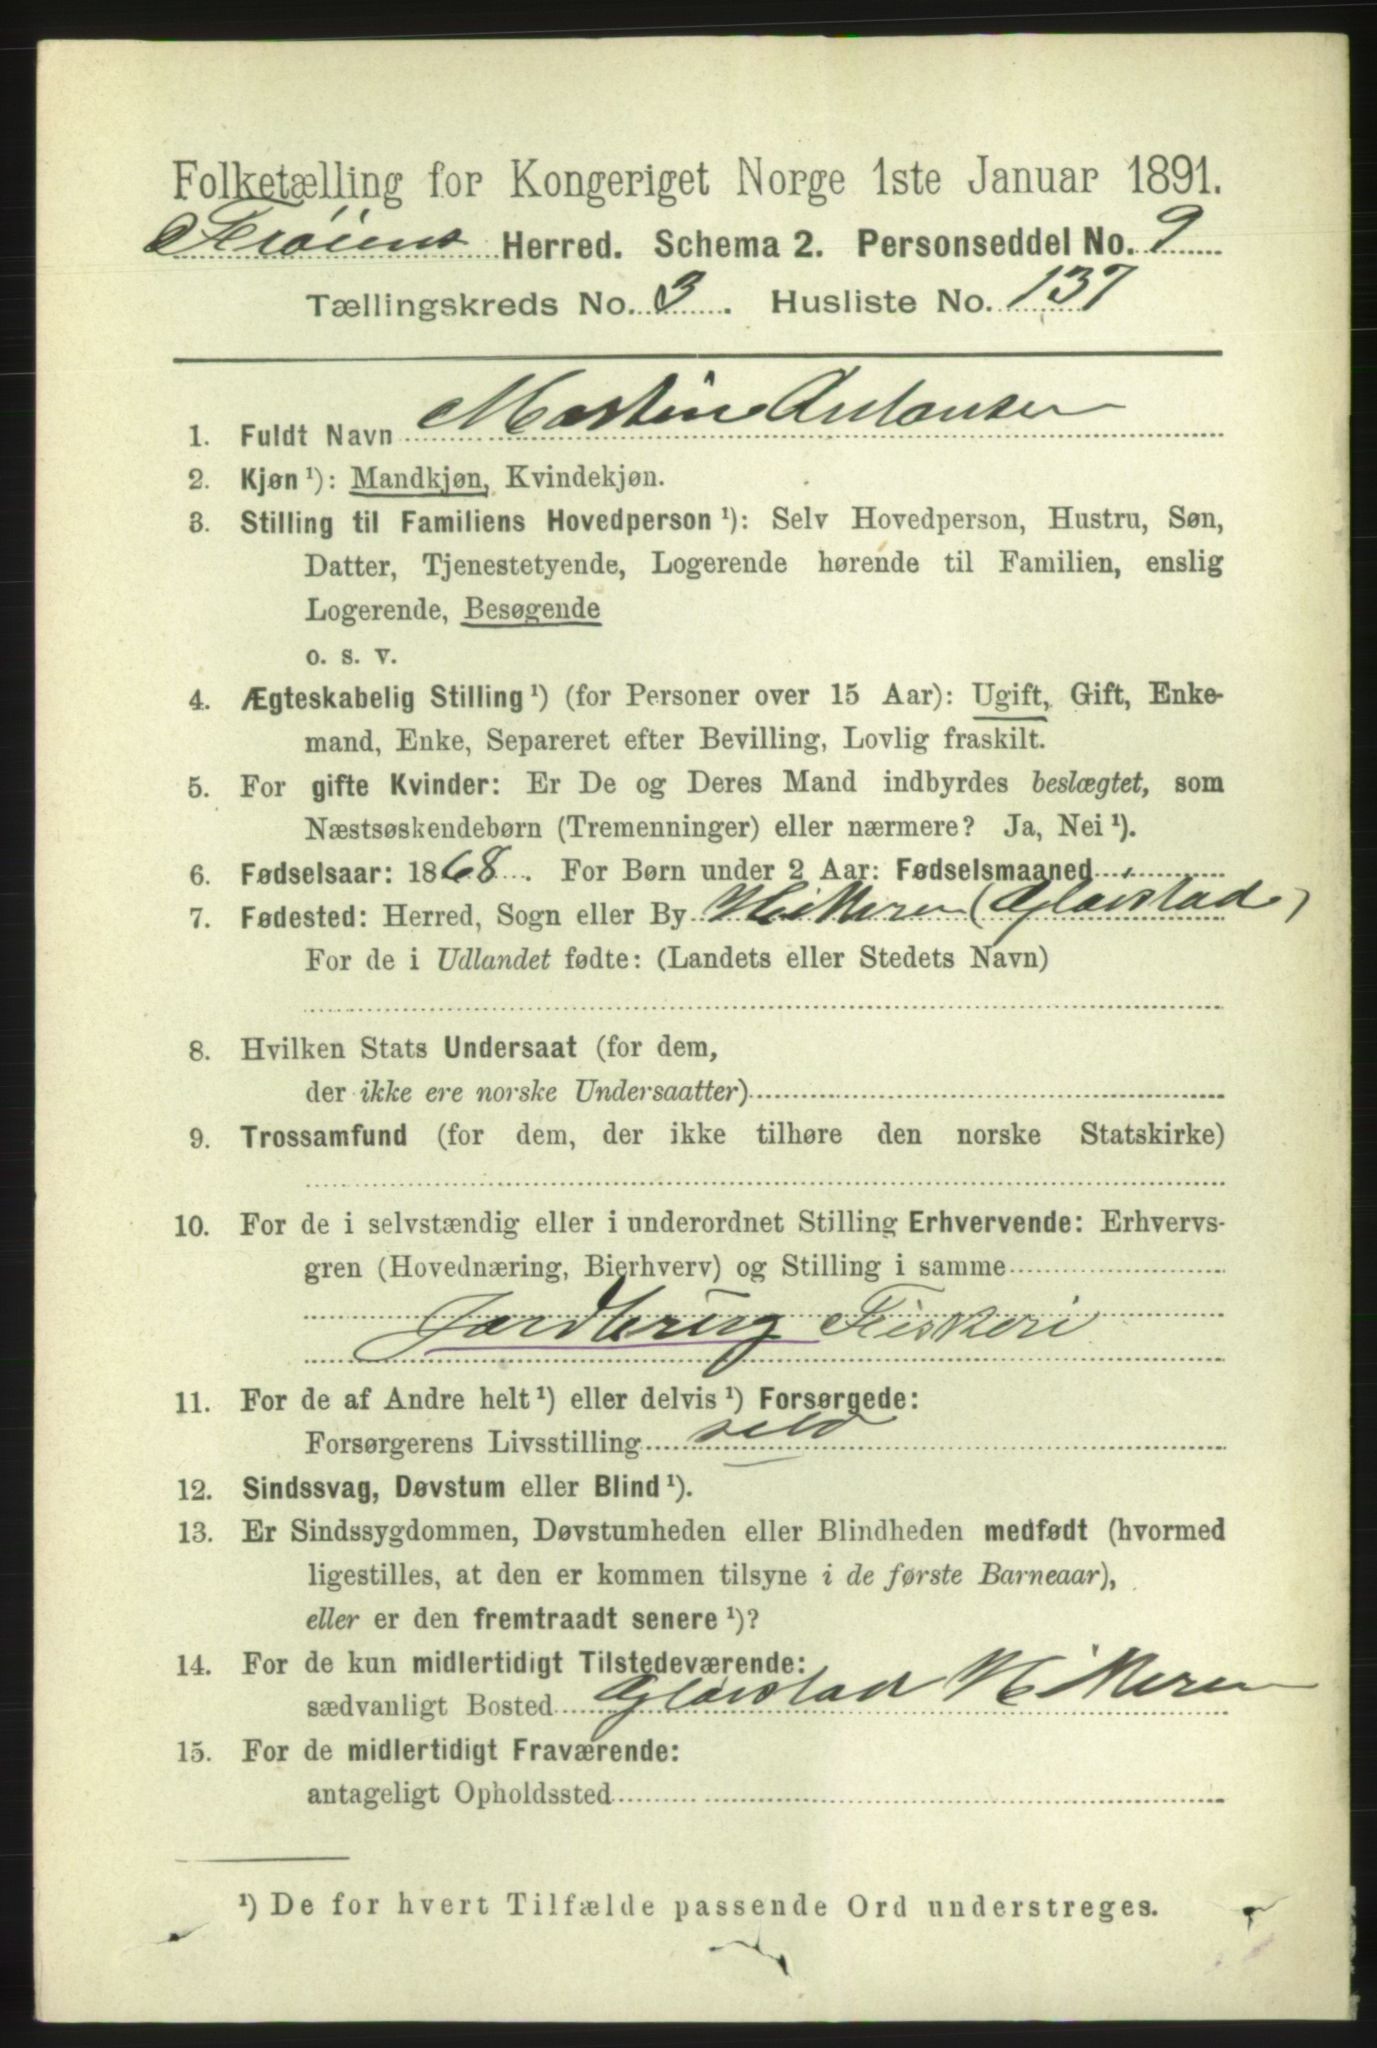 Folketælling for Kongeriget Norge 1ste Januar 1891.
Frøiens Herred. Schema 2. Personseddel No. 9
Tællingskreds No. 3. Husliste No. 137
1. Fuldt Navn Martin Antonsen
2. Kjøn ¹): Mandkjøn, Kvindekjøn.
3. Stilling til Familiens Hovedperson ¹): Selv Hovedperson, Hustru, Søn,
Datter, Tjenestetyende, Logerende hørende til Familien, enslig
Logerende, Besøgende
o. s. v.
4. Ægteskabelig Stilling ¹) (for Personer over 15 Aar): Ugift, Gift, Enke-
mand, Enke, Separeret efter Bevilling, Lovlig fraskilt.
5. For gifte Kvinder: Er De og Deres Mand indbyrdes beslægtet, som
Næstsøskendebørn (Tremenninger) eller nærmere? Ja, Nei ¹).
6. Fødselsaar: 1868. For Børn under 2 Aar: Fødselsmaaned
7. Fødested: Herred, Sogn eller By Hitteren (Gløistad)
For de i Udlandet fødte: (Landets eller Stedets Navn)
8. Hvilken Stats Undersaat (for dem,
der ikke ere norske Undersaatter)
9. Trossamfund (for dem, der ikke tilhøre den norske Statskirke)
10. For de i selvstændig eller i underordnet Stilling Erhvervende: Erhvervs-
gren (Hovednæring, Bierhverv) og Stilling i samme
Jordbrug Fiskeri
11. For de af Andre helt ¹) eller delvis ¹) Forsørgede:
Forsørgerens Livsstilling selv
12. Sindssvag, Døvstum eller Blind ¹).
13. Er Sindssygdommen, Døvstumheden eller Blindheden medfødt (hvormed
ligestilles, at den er kommen tilsyne i de første Barneaar),
eller er den fremtraadt senere ¹)?
14. For de kun midlertidigt Tilstedeværende:
sædvanligt Bosted Gløistad Hitteren
15. For de midlertidigt Fraværende:
antageligt Opholdssted
¹) De for hvert Tilfælde passende Ord understreges.